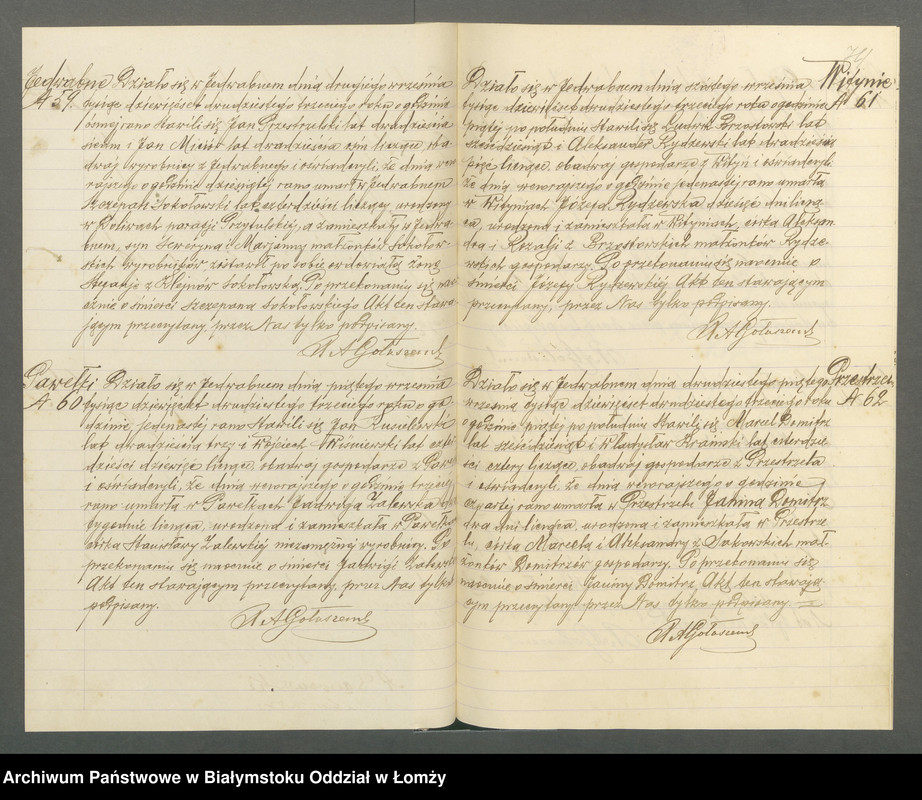 Jedwabne
№ 59.
Działo się w Jedwabnem dnia drugiego września
tysiąc dziewięćset dwudziestego trzeciego roku o godzinie
ósmej rano stawili się Jan Przestrzelski lat dwadzieścia
siedm i Jan lat dwadzieścia liczący, oba-
dwaj wyrobnicy z Jedwabnego i oświadczyli, że dnia wczo-
rajszego o godzinie dziesiątej rano umarł w Jedwabnem
Szczepan Sokołowski lat czterdzieści liczący urodzony
w parafji Przytulskiej, a zamieszkały w Jedwa-
bnem, syn Seweryna i Marjanny małżonków Sokołow-
skich wyrobników, zostawił po sobie owdowiałą żonę
Stefanję z Sokołowską. Po przekonaniu się nao-
cznie o śmierci Szczepana Sokołowskiego Akt ten stawa-
jącym przeczytany, przez Nas tylko podpisany.
X A Gołaszewski
Pawełki
№ 60
Działo się w Jedwabnem dnia piątego września
tysiąc dziewięćset dwudziestego trzeciego roku o go-
dzinie jedenastej rano stawili się Jan
lat dwadzieścia trzy i Wojciech Wiśniewski lat czter-
dzieści dziewięć liczące, obadwaj gospodarze z Pawełk
i oświadczyli, że dnia wczorajszego o godzinie trzeciej
rano umarła w Pawełkach Jadwiga Zalewska
tygodnie licząca, urodzona i zamieszkała w Pawełkach
córka Stanisławy Zalewskiej niezamężnej wyrobnicy. Po
przekonaniu się naocznie o śmierci Jadwigi Zalewskiej
Akt ten stawającym przeczytany, przez Nas tylko
podpisany.
X A Gołaszewski
Witynie
№ 61
Działo się w Jedwabnem dnia szóstego września
tysiąc dziewięćset dwudziestego trzeciego roku o godzinie
piątej po południu stawili się Ludwik Brzostowski lat
sześćdziesiąt i Aleksander Rydzewski lat dwadzieścia
pięć liczące, obadwaj gospodarze z Wityń i oświadczyli
że dnia wczorajszego o godzinie jedenastej rano umarła
w Wityniach Józefa Rydzewska dziesięć dni liczą-
ca, urodzona i zamieszkała w Wityniach, córka Aleksan-
dra i Rozalji z Brzostowskich małżonków Rydze-
wskich gospodarzy. Po przekonaniu się naocznie o
śmierci Józefy Rydzewskiej Akt ten stawającym
przeczytany, przez Nas tylko podpisany.
X A Gołaszewski
Przestrzele
№ 62
Działo się w Jedwabnem dnia dwudziestego piątego
września tysiąc dziewięćset dwudziestego trzeciego roku
o godzinie piątej po południu stawili się Marceli Domitrz
lat sześćdziesiąt i Władysław lat czterdzie-
ści cztery liczące, obadwaj gospodarze z Przestrzela
i oświadczyli, że dnia wczorajszego o godzinie
czwartej rano umarła w Przestrzelu Janina Domitrz
dwa dni licząca, urodzona i zamieszkała w Przestrze-
lu, córka Marcela i Aleksandry z Sakowskich mał-
żonków Domitrzów gospodarzy. Po przekonaniu się
naocznie o śmierci Janiny Domitrz, Akt ten stawają-
cym przeczytany przez Nas tylko podpisany. =
X A Gołaszewski
Archiwum Państwowe w Białymstoku Oddział w Łomży